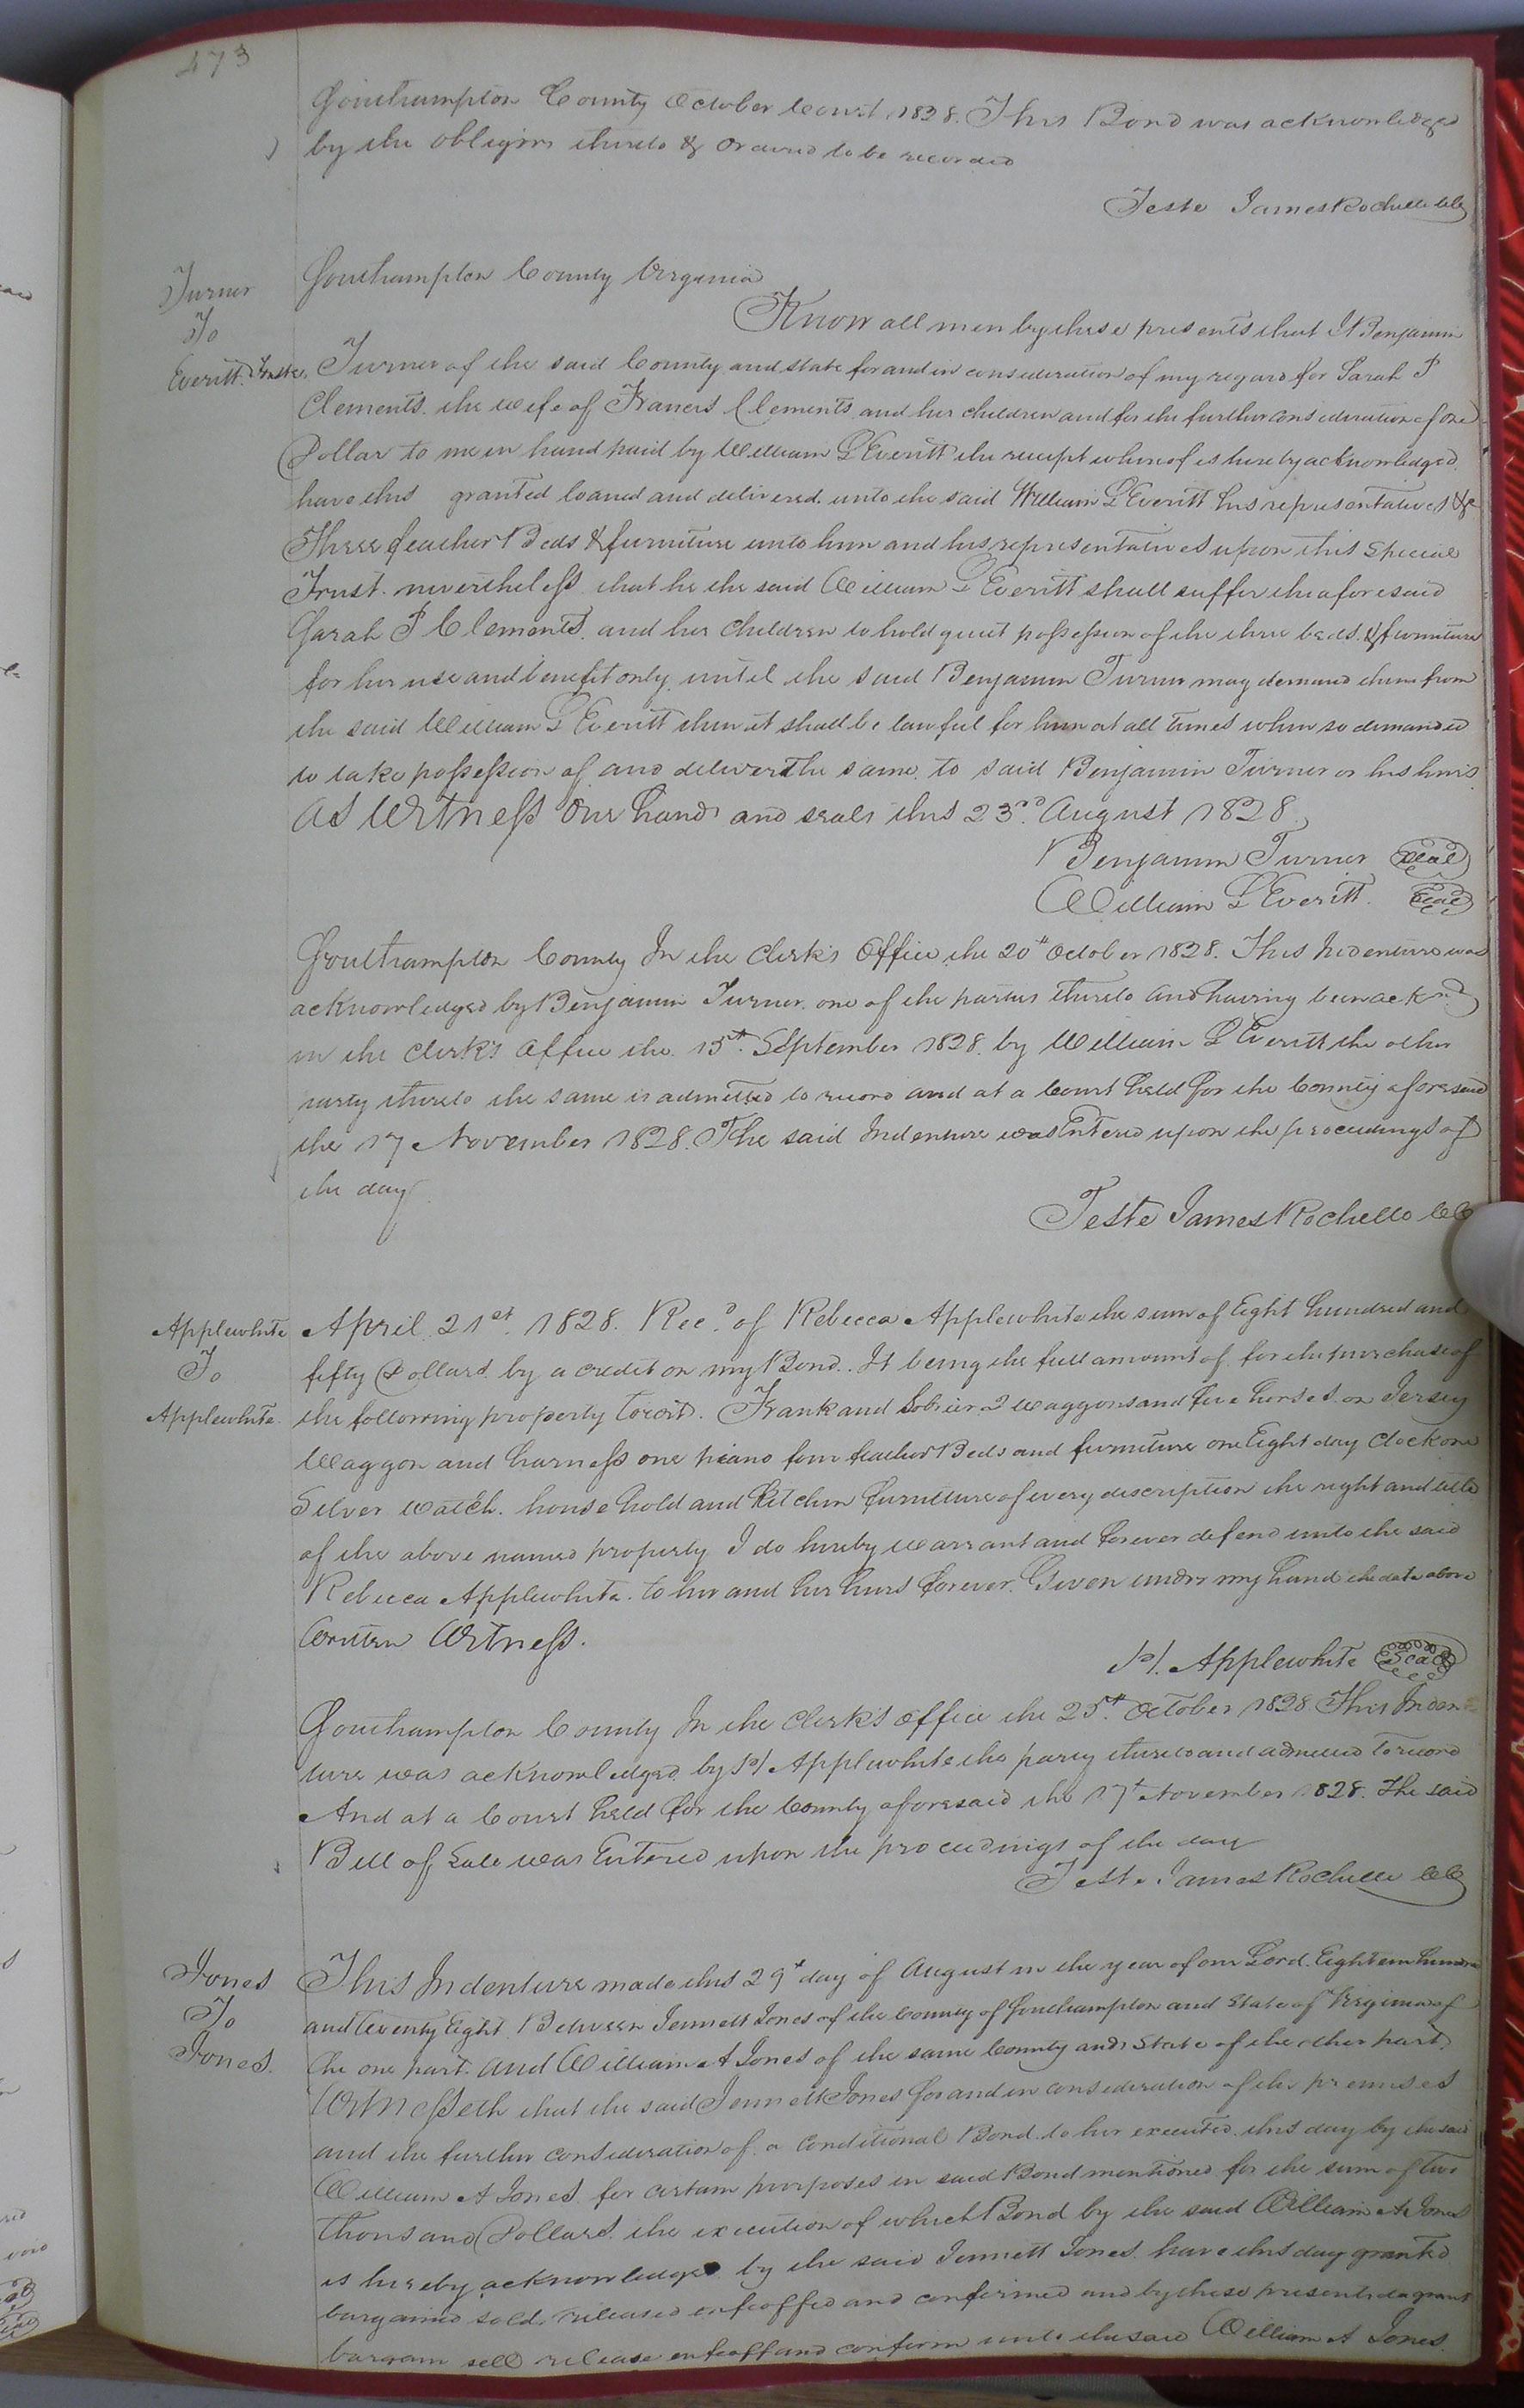 473
Southampton County October Court 1828. This Bond was acknowledged
by the obligors thereto & Ordered to be recorded
Teste James Rochelle CC
Turner
To
Everitt Trustee
Southampton County Virginia
Know all men by these presents that I Benjamin
Turner of the said County and state for and in consideration of my regard for Sarah P
Clements the wife of Francis Clements and her children and for the further consideration of one
Dollar to me in hand paid by William L Everitt the receipt whereof is hereby acknowledged
have this granted loaned and delivered unto the said William L Everitt his representatives &c
Three feather Beds & furniture unto him and his representatives upon this special
Trust nevertheless that he the said William L Everitt shall suffer the aforesaid
Sarah P Clements and her children to hold quiet possession of the three beds & furniture
for her use and benefit only until the said Benjamin Turner may demand them from
the said William L Everitt then it shall be lawful for him at all times when so demanded
to take possession of and deliver the same to said Benjamin Turner or his heirs
As Witness Our hands and seals this 23rd August 1828
Benjamin Turner Seal
William L Everitt Seal
Southampton County In the Clerk's Office the 20th October 1828. This Indenture was
acknowledged by Benjamin Turner one of the parties thereto and having been ackd
in the Clerk's Office the 15th September 1828 by William L Everitt the other
party thereto the same is admitted to record and at a Court held for the County aforesaid
the 17 November 1828. The said Indenture was Entered upon the proceedings of
the day
Teste James Rochelle CC
Applewhite
To
Applewhite
April 21st 1828. Recd of Rebecca Applewhite the sum of Eight hundred and
fifty Dollars by a credit on my Bond. It being the full amount of for the purchase of
the following property towit. Frank and 2 waggons and five horses on Jersey
Waggon and harness one piano four feather Beds and furniture one Eight day Clock one
Silver watch. household and Kitchen furniture of every description the right and title
of the above named property I do hereby warrant and forever defend unto the said
Rebecca Applewhite to her and her heirs forever. Given under my hand the date above
Written Witness.
H. Applewhite Seal
Southampton County In the Clerk's Office the 25th October 1828 This Inden
ture was acknowledged by H Applewhite the party thereto and admitted to record
And at a Court held for the County aforesaid the 17th November 1828. The said
Bill of Sale was Entered upon the proceedings of the day
Teste James Rochelle CC
Jones
To
Jones
This Indenture made this 29th day of August in the year of our Lord Eighteen hundred
and twenty Eight Between Jennett Jones of the County of Southampton and State of Virginia of
the one part and William A Jones of the same County and State of the other part
Witnesseth that the said Jennett Jones for and in consideration of the premises
and the further consideration of a conditional Bond to her executed this day by the said
William A Jones for certain purposes in said Bond mentioned for the sum of two
thousand Dollars the execution of which Bond by the said William A Jones
is hereby acknowledged by the said Jennett Jones have this day granted
bargained sold released enfeoffed and confirmed and by these presents do grant
bargain sell release enfeoff and confirm unto the said William A Jones